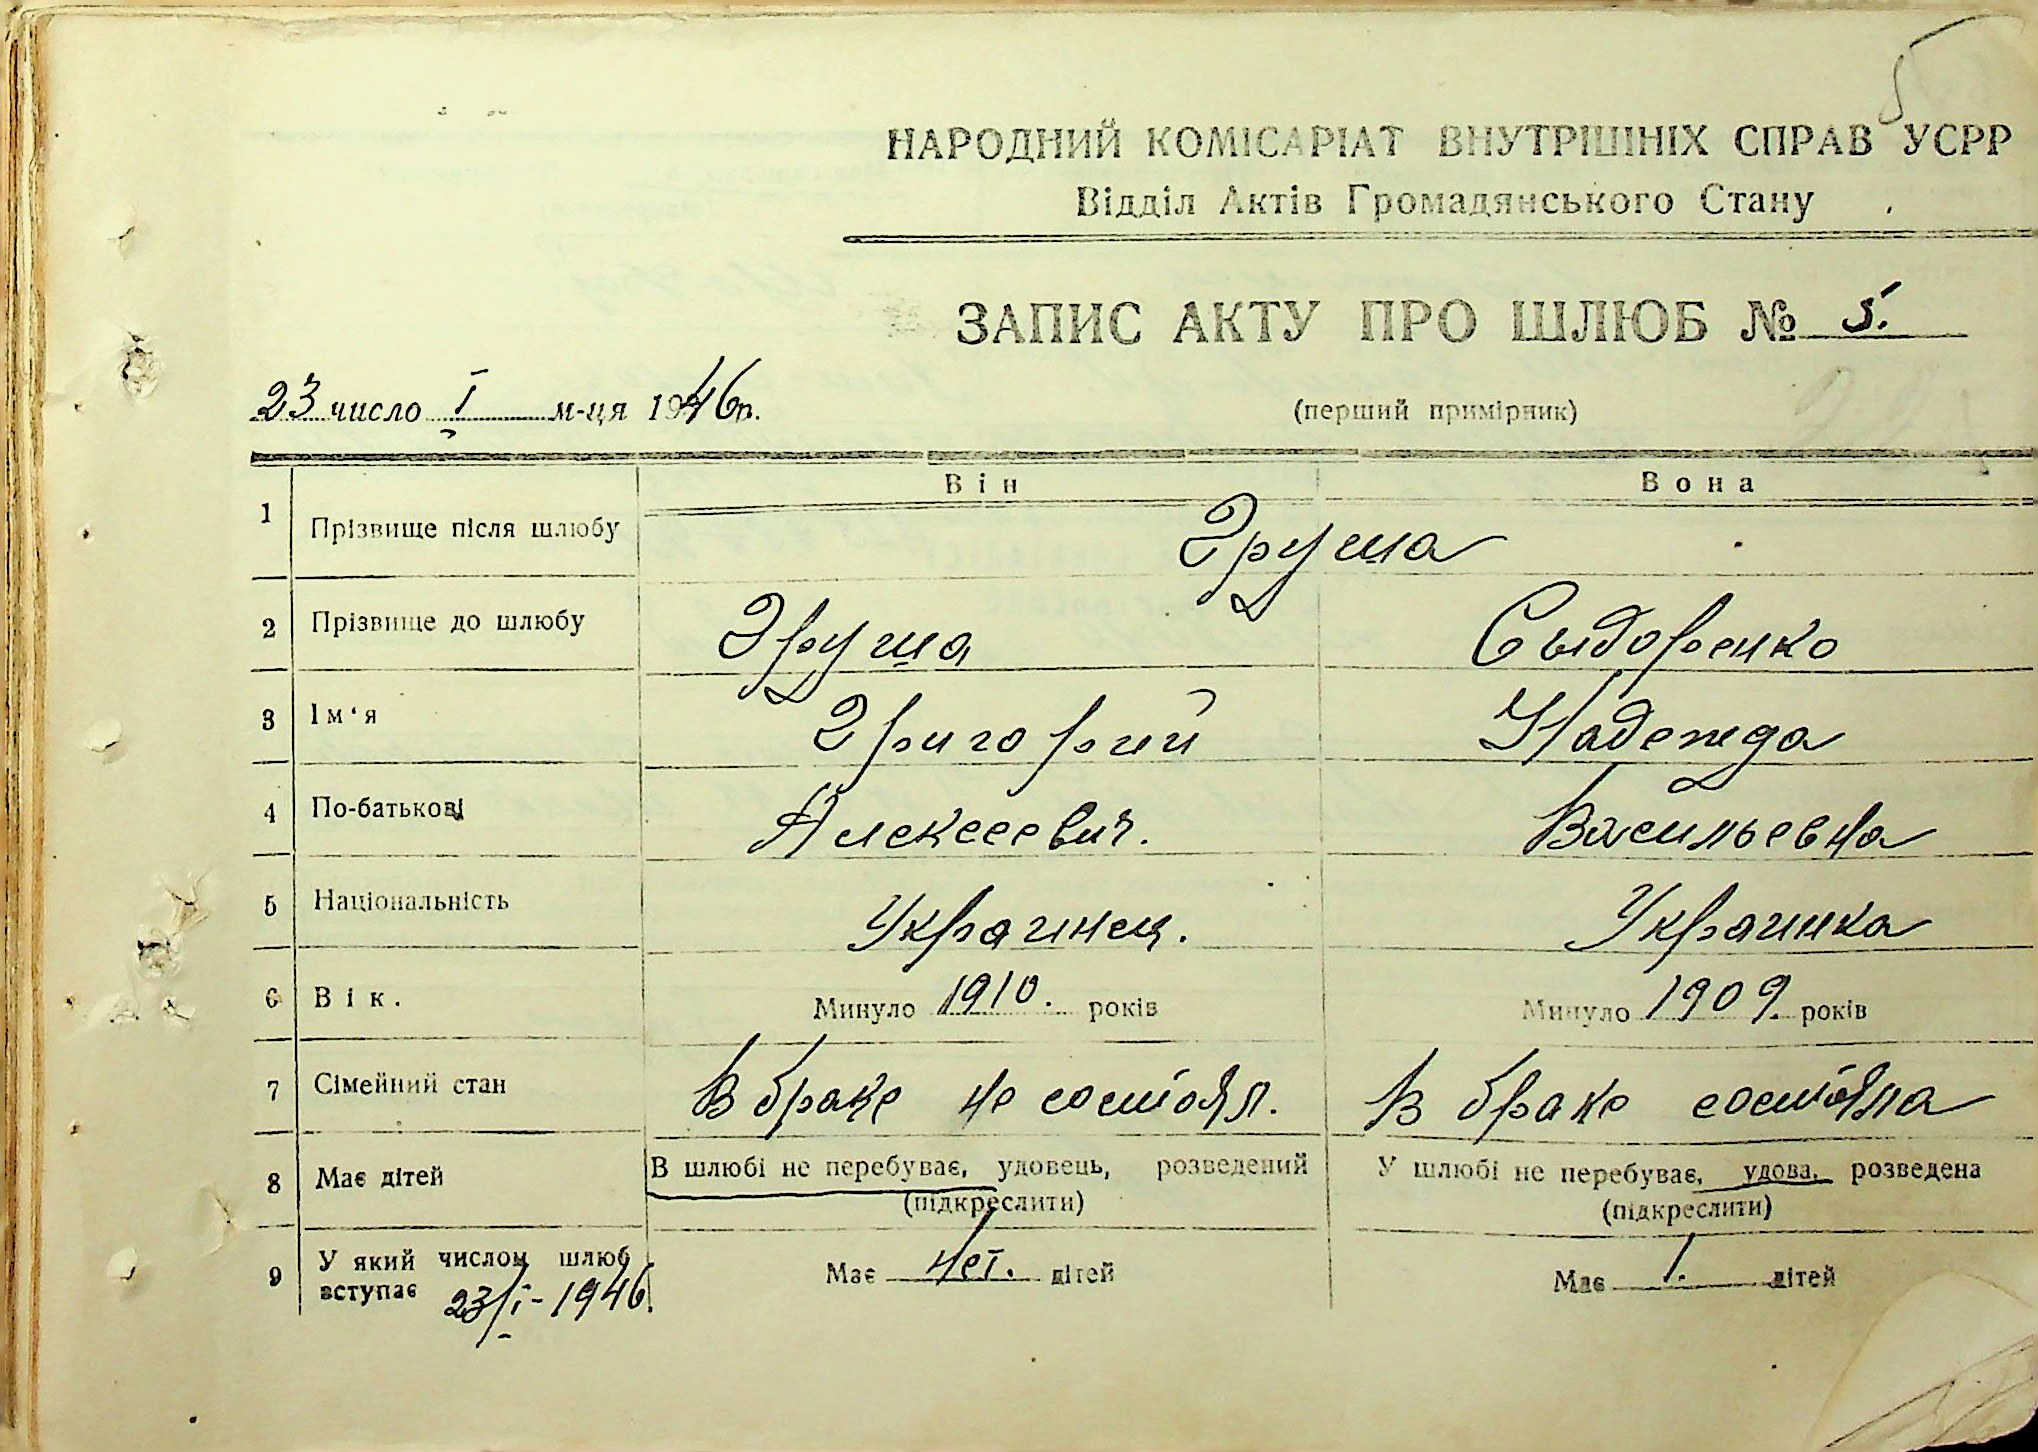 5
НАРОДНИЙ КОМІСАРІАТ ВНУТРІШНІХ СПРАВ УСРР
Відділ Актів Громадянського Стану
ЗАПИС АКТУ ПРО ШЛЮБ № 5.
23 число I м-ця 1946 р.
(перший примірник)
Він Вона
1 Прізвище після шлюбу Груша
2 Прізвище до шлюбу Груша Сыдоренко
3 Ім'я Григорий Надежда
4 По-батькові Алексеевич. Васильевна
5 Національність Украинец. Украинка
6 Вік. Минуло 1910. років Минуло 1909. років
7 Сімейний стан В браке не состоял. В браке состояла
8 Має дітей В шлюбі не перебуває, удовець, розведений У шлюбі не перебуває, удова, розведена
(підкреслити) (підкреслити)
9 У який числом шлюб
вступає 23/I-1946. Має нет. дітей Має 1. дітей